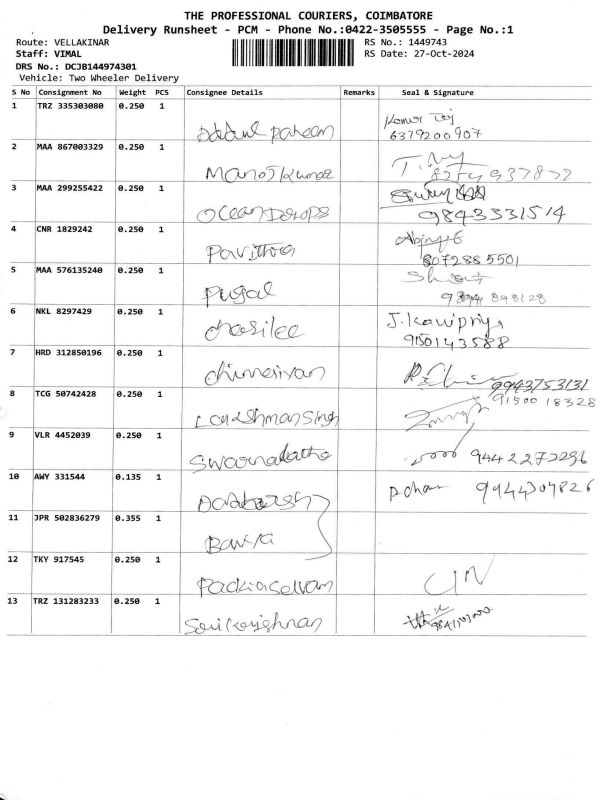 THE PROFESSIONAL COURIERS, COIMBATORE
Delivery Runsheet - PCM - Phone No.:0422-3505555 - Page No.:1
Route: VELLAKINAR RS No.: 1449743
Staff: VIMAL RS Date: 27-Oct-2024
DRS No.: DCJB144974301
Vehicle: Two Wheeler Delivery
S No Consignment No Weight PCS Consignee Details Remarks Seal & Signature
1 TRZ 335303080 0.250 1
6379200907
2 MAA 867003329 0.250 1 Manojkumar
3 MAA 299255422 0.250 1
9843331514
4 CNR 1829242 0.250 1 Pavithra
8072885501
5 MAA 576135240 0.250 1 Pugal
6 NKL 8297429 0.250 1 J.Kavipriya
9150143588
7 HRD 312850196 0.250 1 9943753131
8 TCG 50742428 0.250 1 Lakshmansingh 9150018328
9 VLR 4452039 0.250 1 Swarnalatha 9442272296
10 AWY 331544 0.135 1 9944304826
11 JPR 502836279 0.355 1
12 TKY 917545 0.250 1 Packiaselvam
13 TRZ 131283233 0.250 1